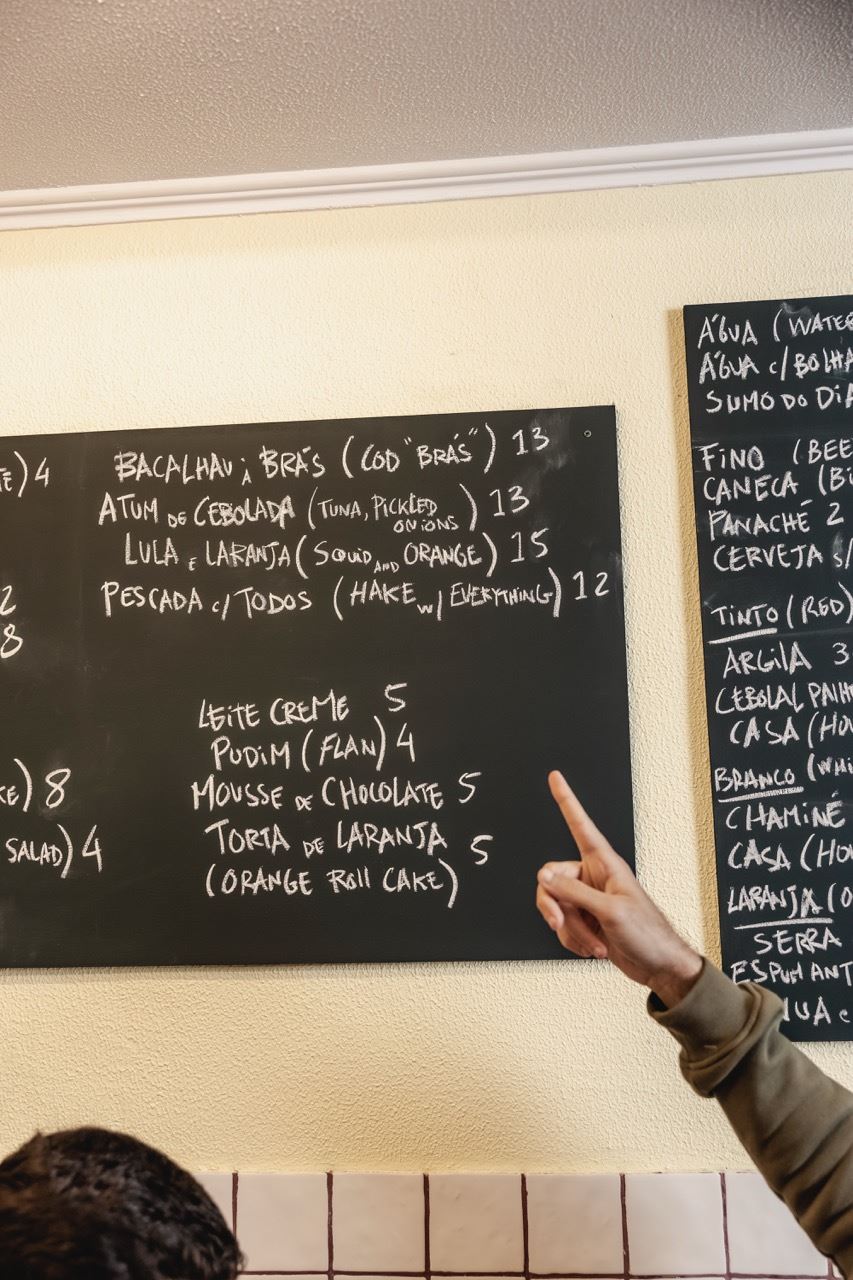 4
2
8
8
SALAD) 4
BACALHAU À BRÁS (COD "BRÁS") 13
ATUM DE CEBOLADA (TUNA, PICKLED ONIONS) 13
LULA E LARANJA (SQUID AND ORANGE) 15
PESCADA C/ TODOS (HAKE W/ EVERYTHING) 12
LEITE CREME 5
PUDIM (FLAN) 4
MOUSSE DE CHOCOLATE 5
TORTA DE LARANJA 5
(ORANGE ROLL CAKE)
ÁGUA (WATE
ÁGUA C/ BOLHA
SUMO DO DIA
FINO (BEE
CANECA (BI
PANACHÉ 2
CERVEJA S/
TINTO (RED)
ARGILA 3
CEBOLAL PALH
CASA (HOU
BRANCO (WHI
CHAMINÉ
CASA (HOU
LARANJA (O
SERRA
ESPUMANT